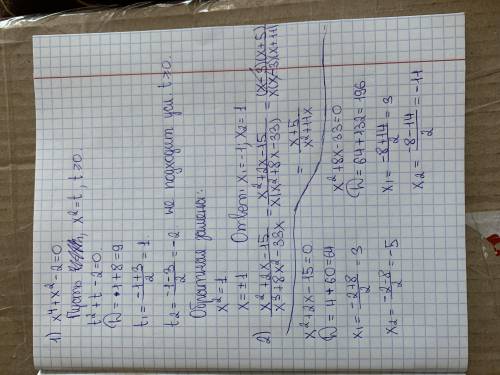 1) x⁴+x²-2=0
Пусть x²=t, t≥0.
t²+t-2=0.
D=1+8=9
t₁=(-1+3)/2=1
t₂=(-1-3)/2=-2 не подходит усл t≥0.
Обратная замена:
x²=1
x=±1 Ответ: x₁=-1; x₂=1
2) (x²+2x-15)/(x³+8x²-33x)=(x²+2x-15)/(x(x²+8x-33))=((x-3)(x+5))/(x(x-3)(x+11))
=(x+5)/(x²+11x)
x²+2x-15=0
D=4+60=64
x₁=(-2+8)/2=3
x₂=(-2-8)/2=-5
x²+8x-33=0
D=64+132=196
x₁=(-8+14)/2=3
x₂=(-8-14)/2=-11